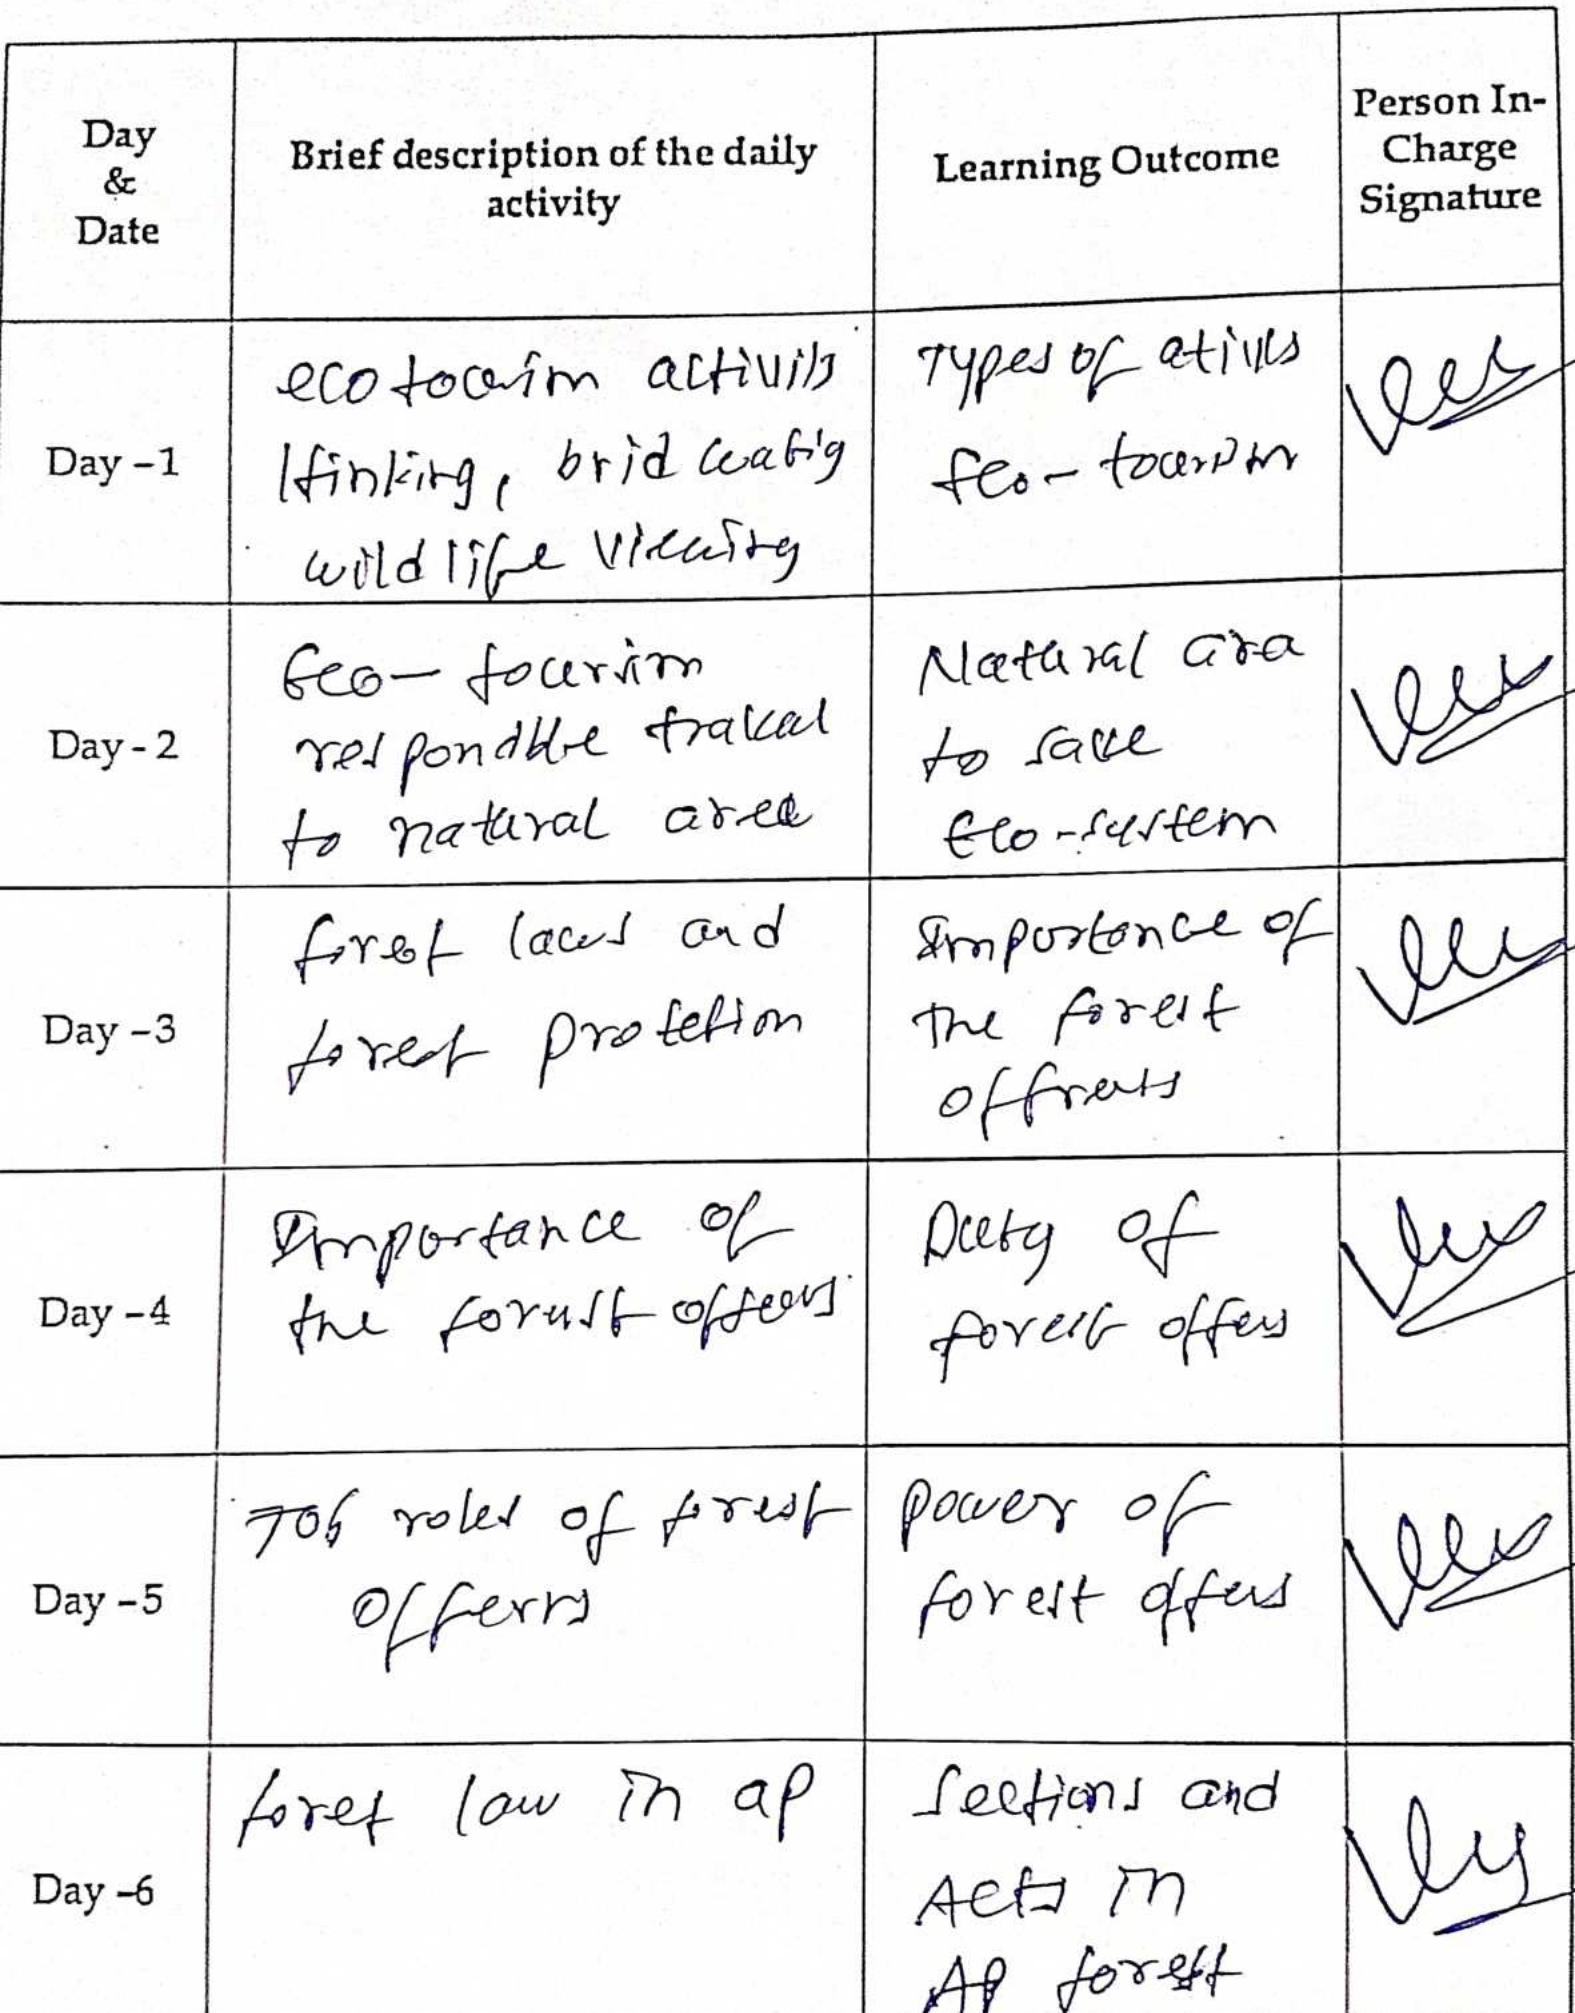 Day
&
Date
Brief description of the daily
activity
Learning Outcome
Person In-
Charge
Signature
Day -1
eco tourim activils
Hinking, brid watig
wild life viewing
Types of ativils
Eco-tourism
Day - 2
Eco-tourim
respondble traval
to natural area
Natural ara
to save
Eco-system
Day -3
foret laws and
forest protetion
Importance of
The forest
Day -4
Importance of
the forust offeers
Duty of
forest offers
Day -5
Job roles of forest
offerrs
power of
forest offers
Day -6
foret law in ap
Sections and
Acts in
AP forest